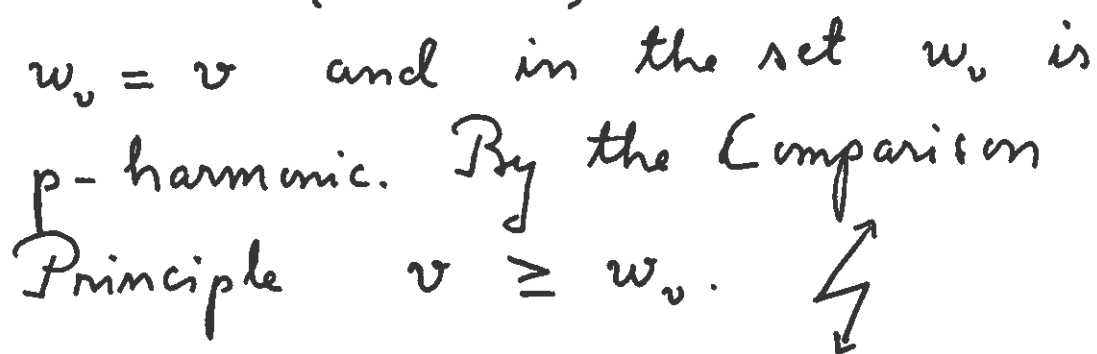 w_v = v and in the set w_v is
p-harmonic. By the Comparison
Principle v ≥ w_v. ↯